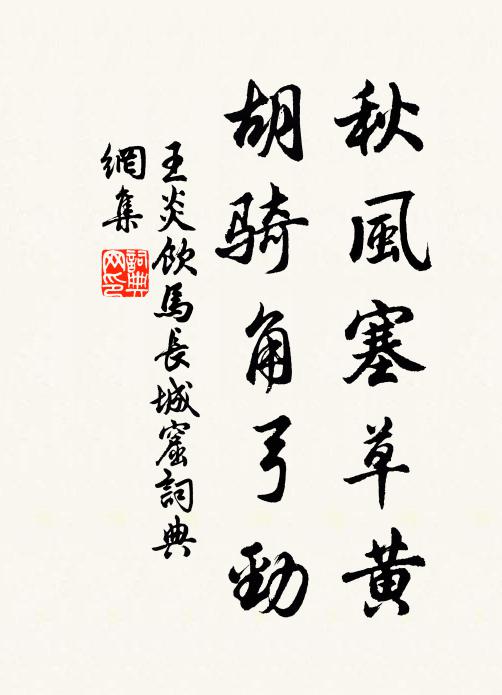 秋風塞草黄
胡騎角弓勁
王炎飲馬長城窟詞典
網集
詞典
网印